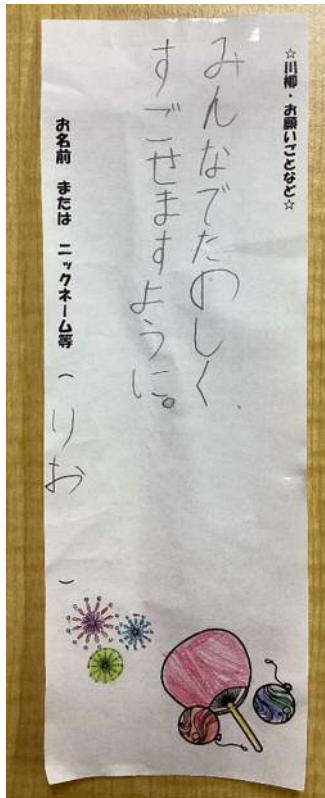 ☆川柳・お願いごとなど☆
みんなでたのしく、
すごせますように。
お名前 または ニックネーム等 (りお)